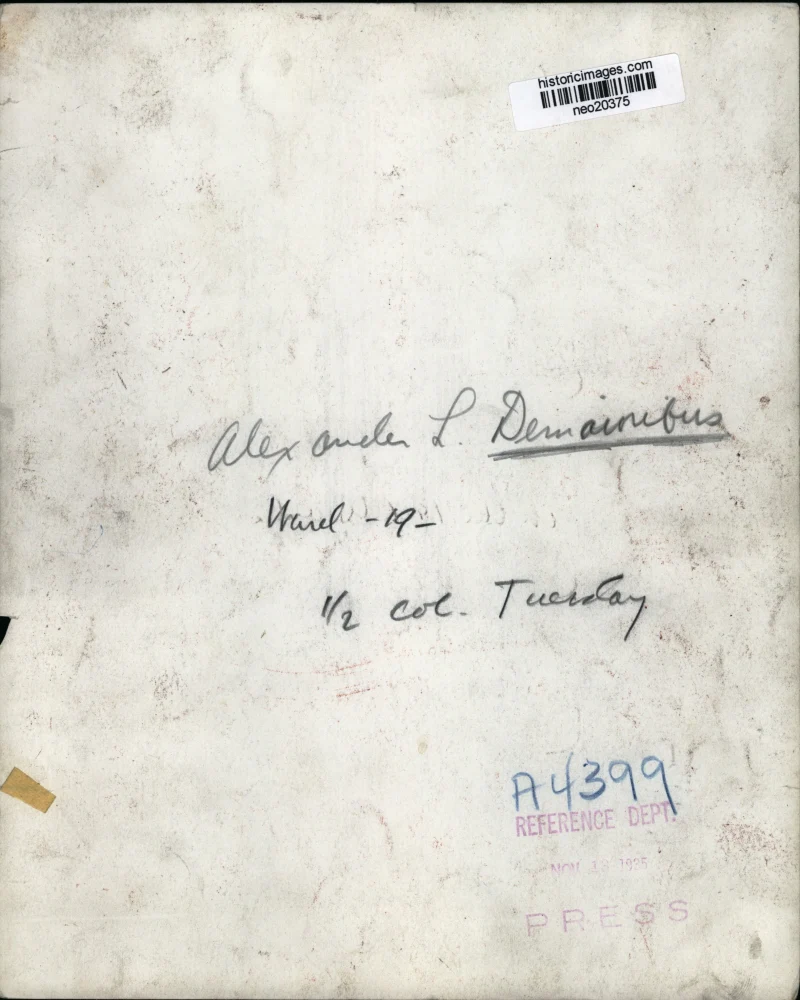 historicimages.com
neo20375
Alexander L. Demaioribus
Ward -19-
1/2 col. Tuesday
A4399
REFERENCE DEPT.
NOV 1935
PRESS